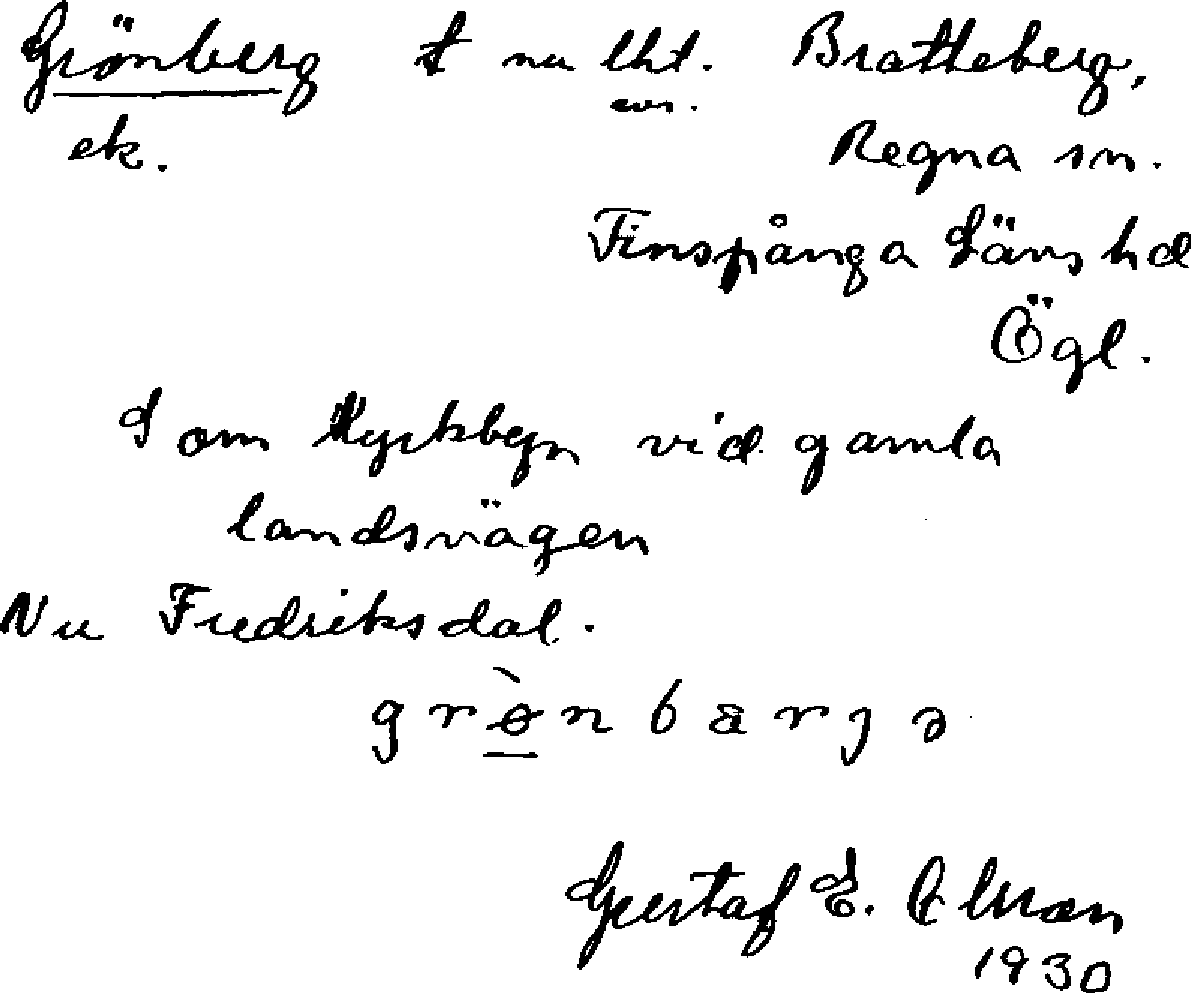 Grönberg † nu lht. Bratteberg,
ek. Regna sn.
Finspånga Läns hd
Ögl.
S om Kyrkbyn vid gamla
landsvägen
Nu Fredriksdal.
grø̀nbærjə
Gustaf E.
1930